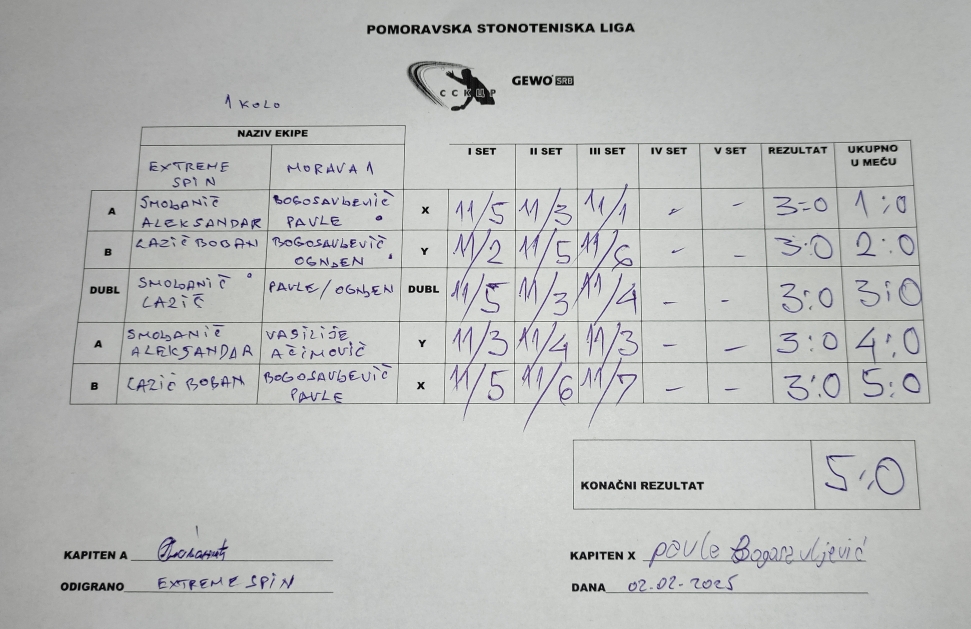 POMORAVSKA STONOTENISKA LIGA
ССКЦР GEWO SRB
1 KOLO
NAZIV EKIPE
EXTREME SPIN MORAVA 1 I SET II SET III SET IV SET V SET REZULTAT UKUPNO U MEČU
A SMOLANIČ ALEKSANDAR BOGOSAVLEVIČ PAVLE X 11/5 11/3 11/1 - - 3=0 1:0
B LAZIČ BOBAN BOGOSAVLEVIČ OGNJEN Y 11/2 11/5 11/6 - - 3:0 2:0
DUBL SMOLANIČ LAZIČ PAVLE/OGNJEN DUBL 11/5 11/3 11/4 - - 3:0 3:0
A SMOLANIČ ALEKSANDAR VASILIJE AČIMOVIČ Y 11/3 11/4 11/3 - - 3:0 4:0
B LAZIČ BOBAN BOGOSAVLEVIČ PAVLE X 11/5 11/6 11/7 - - 3:0 5:0
KONAČNI REZULTAT 5:0
KAPITEN A KAPITEN X Pavle Bogosavljević
ODIGRANO EXTREME SPIN DANA 02.02-2025